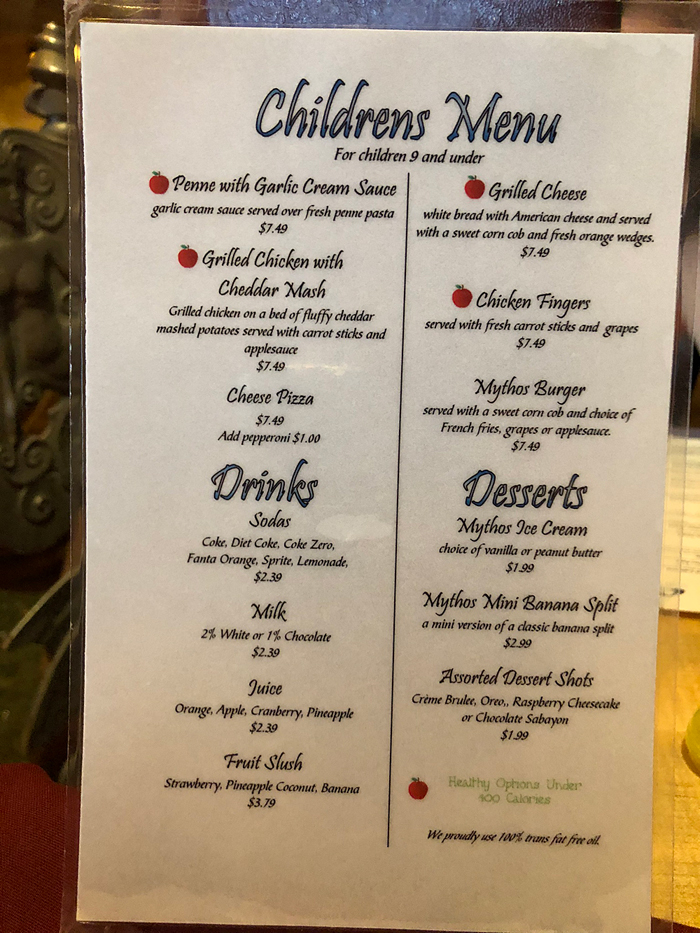 Childrens Menu
For children 9 and under
Penne with Garlic Cream Sauce
garlic cream sauce served over fresh penne pasta
$7.49
Grilled Chicken with
Cheddar Mash
Grilled chicken on a bed of fluffy cheddar
mashed potatoes served with carrot sticks and
applesauce
$7.49
Cheese Pizza
$7.49
Add pepperoni $1.00
Drinks
Sodas
Coke, Diet Coke, Coke Zero,
Fanta Orange, Sprite, Lemonade,
$2.39
Milk
2% White or 1% Chocolate
$2.39
Juice
Orange, Apple, Cranberry, Pineapple
$2.39
Fruit Slush
Strawberry, Pineapple Coconut, Banana
$3.79
Grilled Cheese
white bread with American cheese and served
with a sweet corn cob and fresh orange wedges.
$7.49
Chicken Fingers
served with fresh carrot sticks and grapes
$7.49
Mythos Burger
served with a sweet corn cob and choice of
French fries, grapes or applesauce.
$7.49
Desserts
Mythos Ice Cream
choice of vanilla or peanut butter
$1.99
Mythos Mini Banana Split
a mini version of a classic banana split
$2.99
Assorted Dessert Shots
Crème Brulee, Oreo,, Raspberry Cheesecake
or Chocolate Sabayon
$1.99
Healthy Options Under
Calories
We proudly use 100% trans fat free oil.